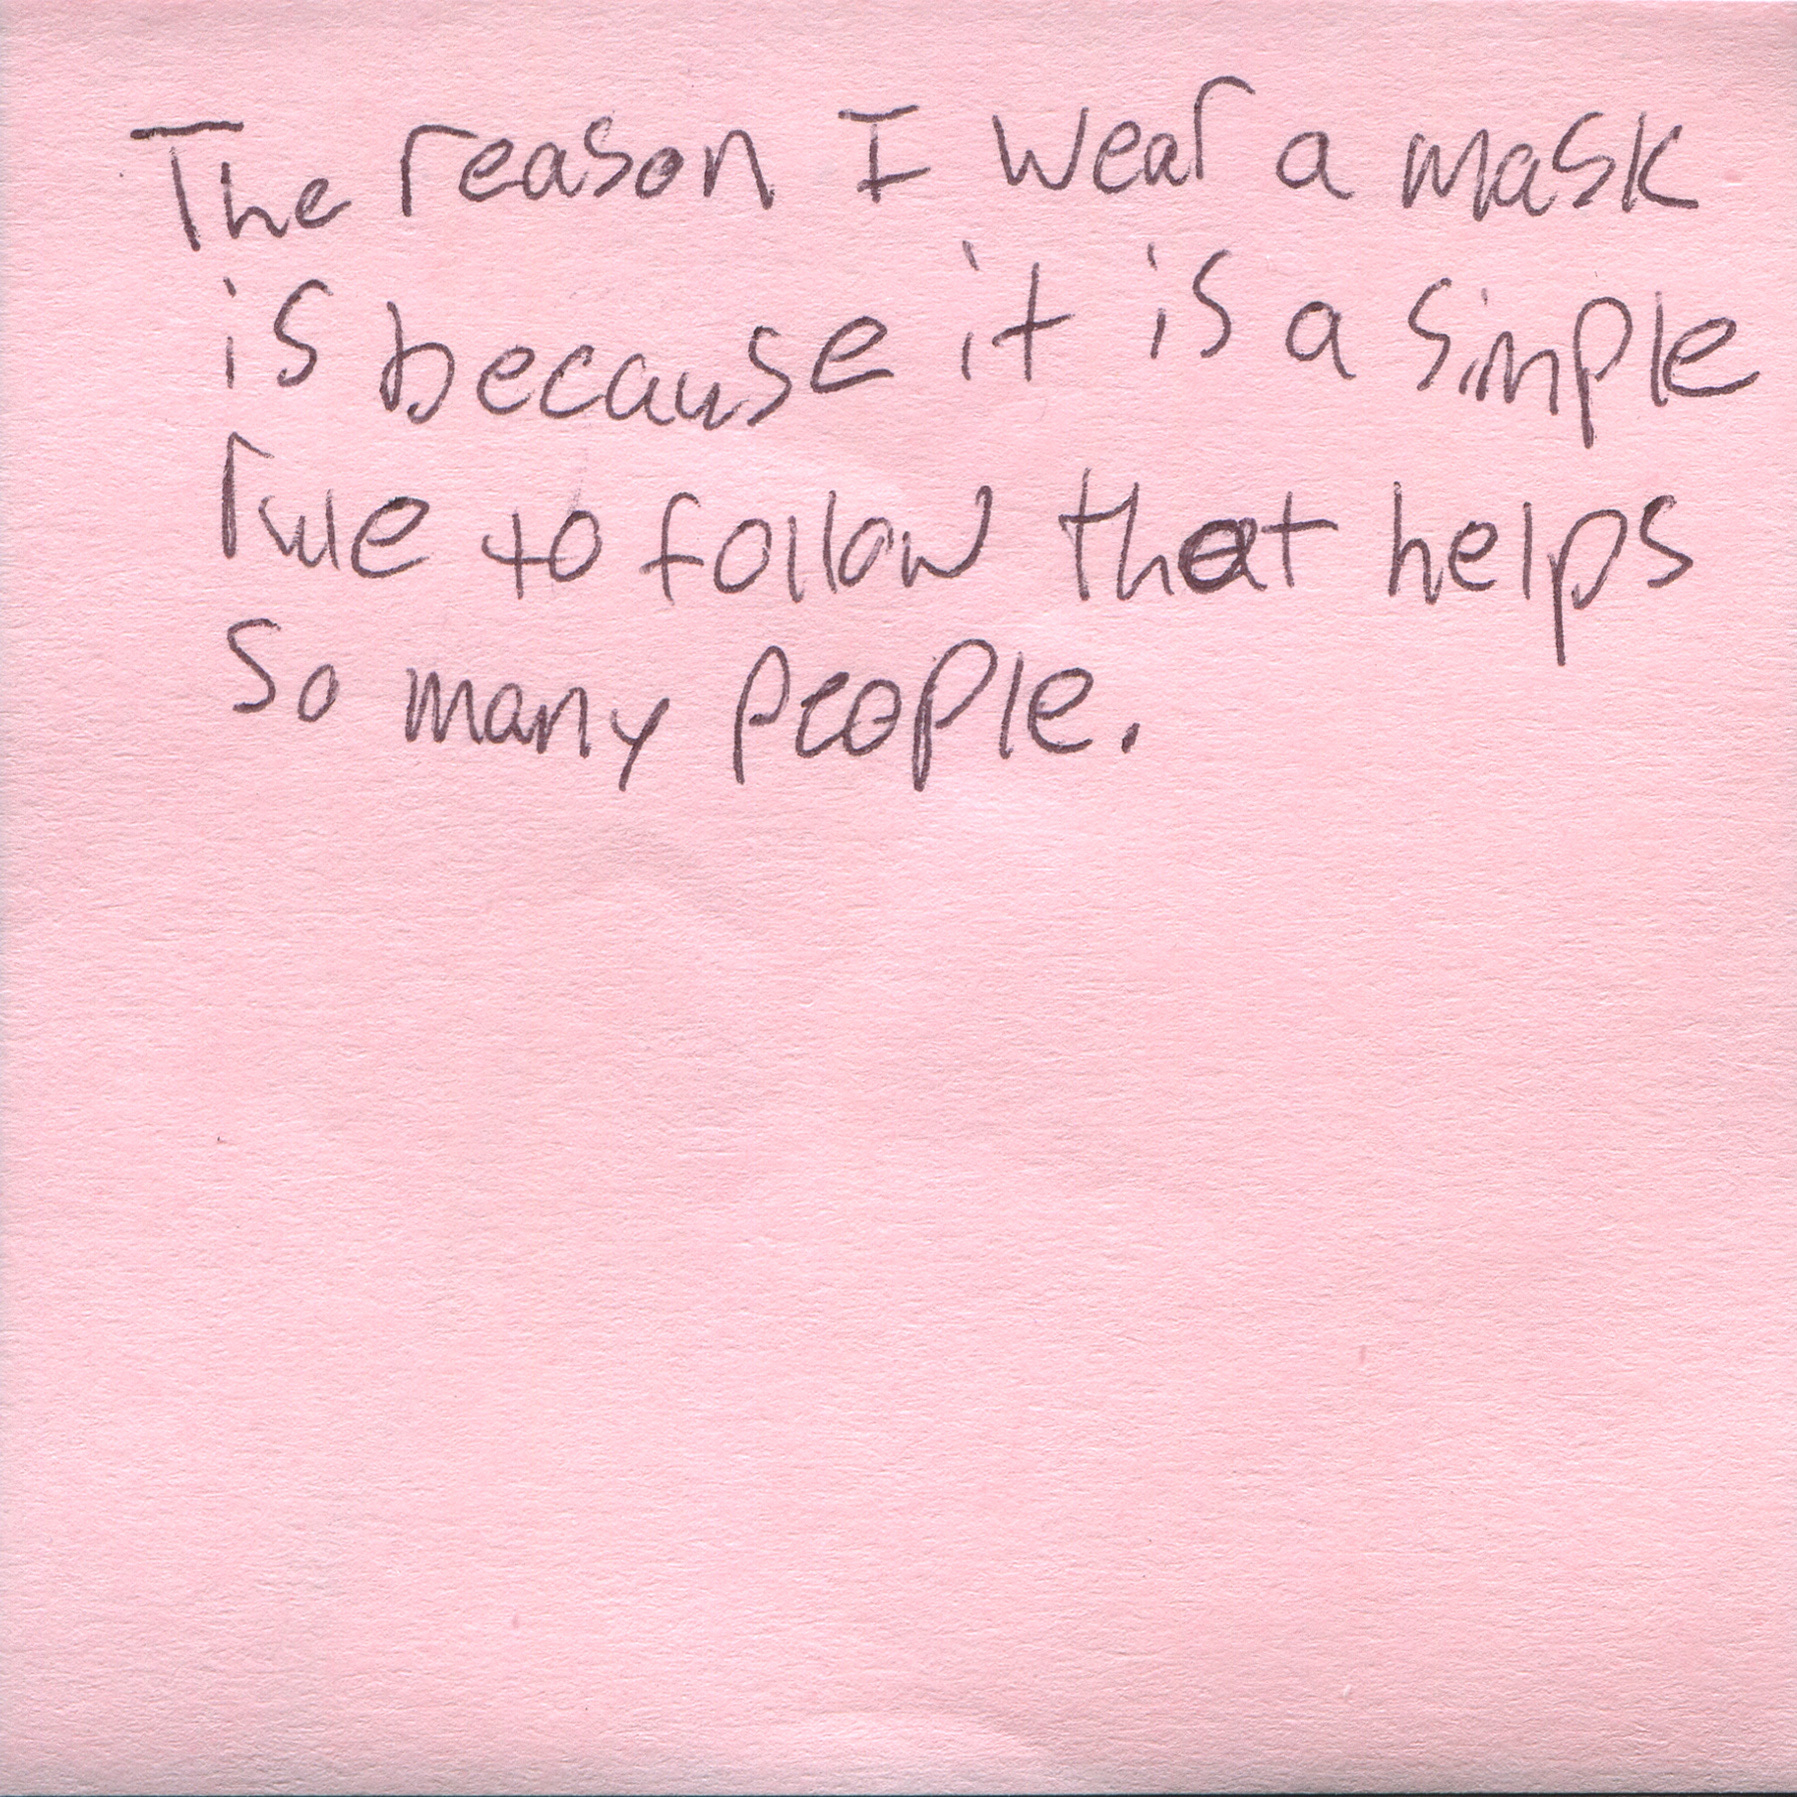 The reason I wear a mask
is because it is a simple
rule to follow that helps
so many people.